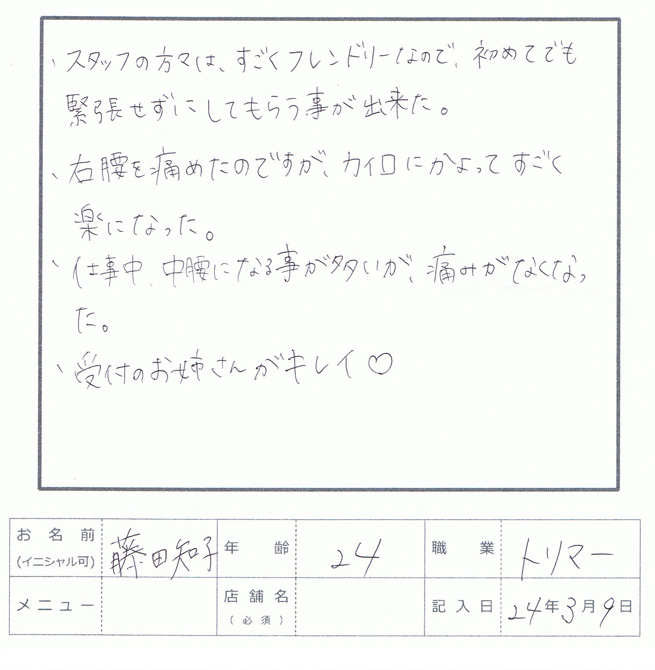 、スタッフの方々は、すごくフレンドリーなので、初めてでも
緊張せずにしてもらう事が出来た。
、右腰を痛めたのですが、カイロにかよってすごく
楽になった。
、仕事中、中腰になる事が多いが、痛みがなくなっ
た。
、受付のお姉さんがキレイ♡
お名前 (イニシャル可) 藤田知子 年齢 24 職業 トリマー
メニュー 店舗名 (必須) 記入日 24年3月9日